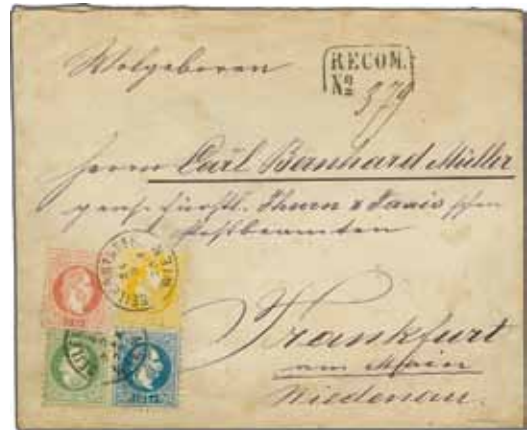 Wolgeboren
RECOM.
No 379
Herrn Carl Bernhard Müller
pens. fürstl. Thurn & Taxis'schen
Postbeamten
WIEN
Frankfurt
am Main
Wiedenau.